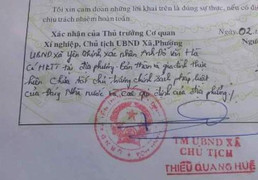 Tôi xin cam đoan những lời khai trên là đúng sự thực, nếu có đi
chịu trách nhiệm hoàn toàn.
Xác nhận của Thủ trưởng Cơ quan
Xí nghiệp, Chủ tịch UBND Xã, Phường
Ngày 02
UBND xã Yên Định xác nhận Anh Đỗ Văn
có HKTT tại địa phương. Bản thân và gia đình thực
hiện chấp hành tốt chủ trương chính sách pháp luật
của Đảng Nhà nước và các quy định của địa phương./
TM UBND XÃ
CHỦ TỊCH
THIỀU QUANG HUẾ